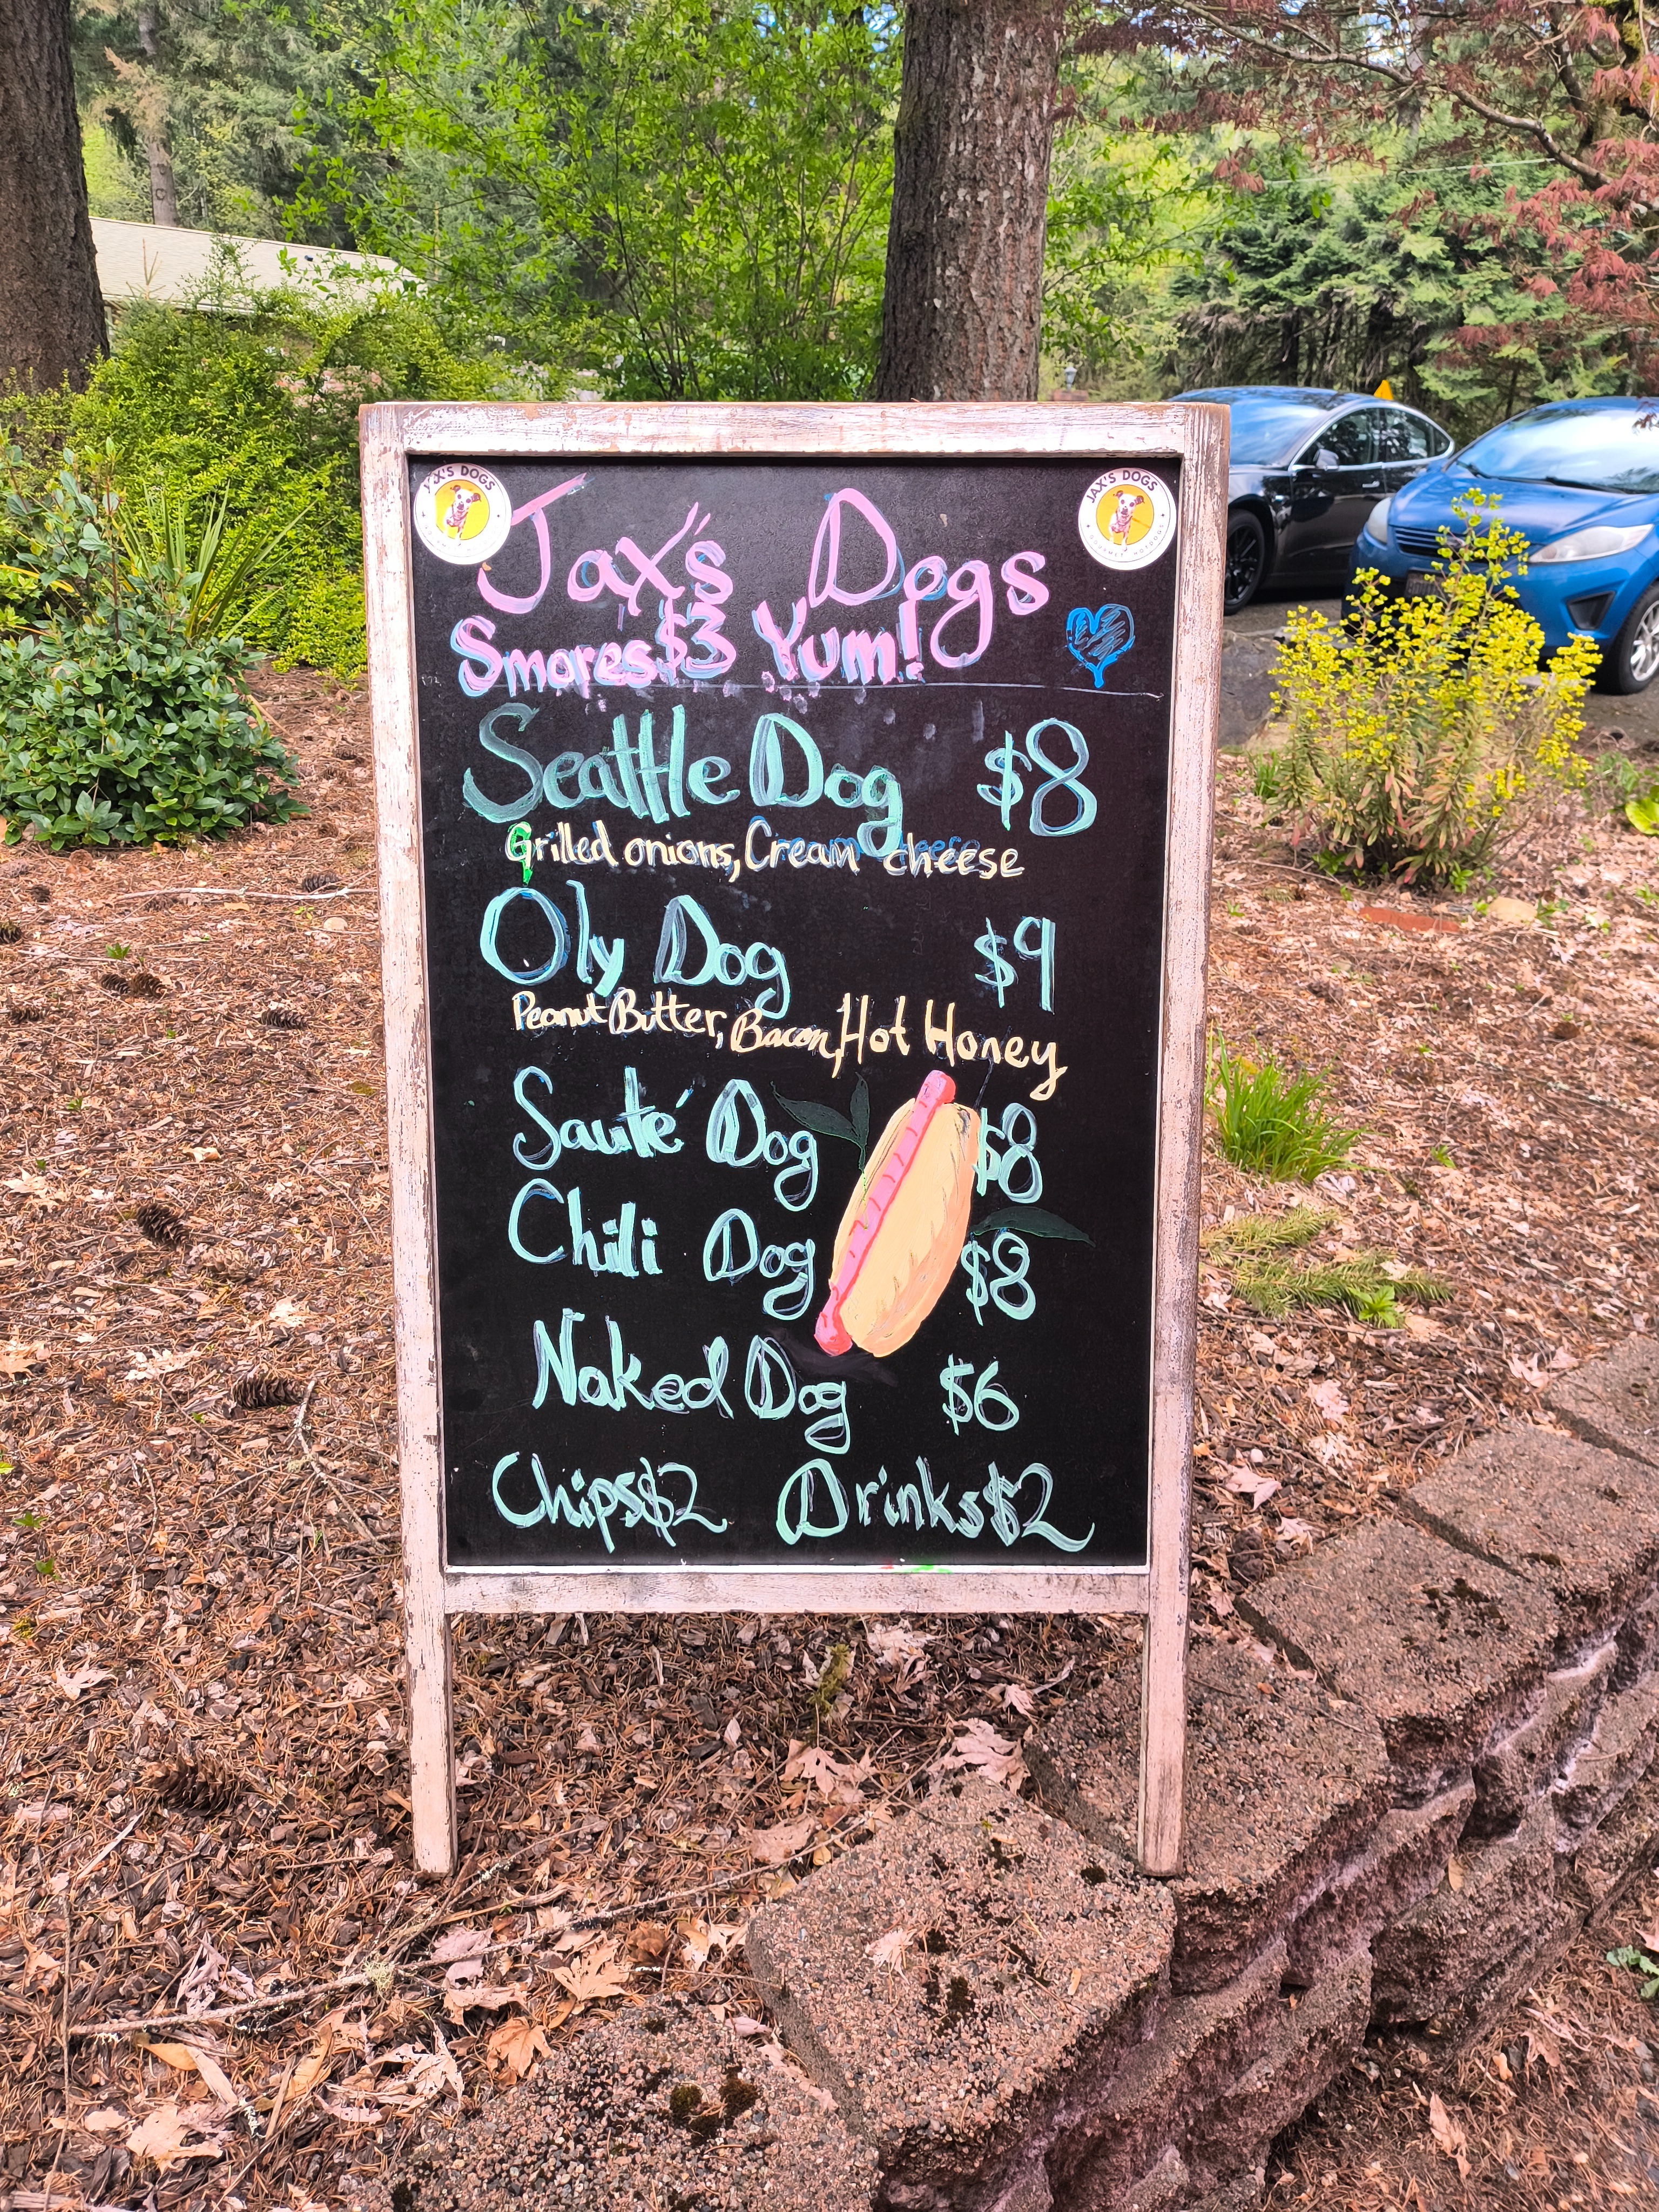 JAX'S DOGS
JAX'S DOGS
GOURMET HOTDOGS
Jax's Dogs
Smores $3 Yum!
Seattle Dog $8
Grilled onions, Cream cheese
Oly Dog $9
Peanut Butter, Bacon, Hot Honey
Sauté Dog $8
Chili Dog $8
Naked Dog $6
Chips $2 Drinks $2